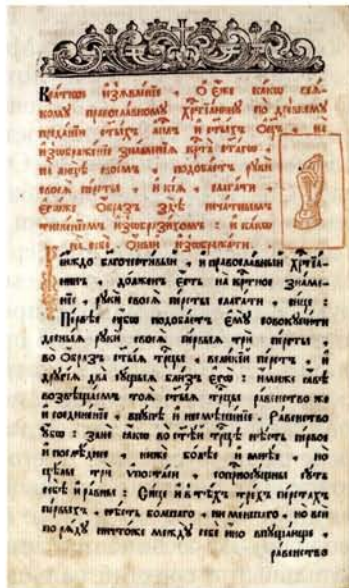 Краткое и҆з̾ѧвле́нїе , Ѻ҆ є҆́же ка́кѡ всѧ́-
кому правосла́вному хрⷭ҇тїа́нину по дре́внему
преда́нїю ст҃ы́хъ а҆пⷭ҇лъ и҆ ст҃ы́хъ ѻ҆ц҃ъ , на
и҆з̾ѡбраже́нїе зна́менїѧ крⷭ҇та̀ ст҃а́гѡ ,
на лицѐ свое́мъ , подоба́етъ рукѝ
своеѧ̀ персты̀ , и҆ кі́ѧ , слага́ти ,
є҆гѡ́же ѻ҆́бразъ здѣ̀ печа́тнымъ
тисне́нїемъ и҆з̾ѡбрази́хомъ : и҆ ка́кѡ
на себѐ ѻ҆́ный и҆з̾ѡбража́ти .
ійждо благочести́вый , и҆ правосла́вный хрⷭ҇тїа́-
нинъ , до́лженъ є҆́сть на крⷭ҇тное зна́ме-
нїе , рукѝ своеѧ̀ персты̀ слага́ти , си́це :
Пе́рвѣе ѹ҆́бѡ подоба́етъ є҆мꙋ̀ совокꙋпи́ти
десны́ѧ рукѝ своеѧ̀ пе́рвыѧ трѝ персты̀ ,
во ѻ҆́бразъ ст҃ы́ѧ трⷪ҇цы , вели́кїй пе́рстъ , и҆
другі́ѧ два̀ сꙋ́щыѧ бли́зъ є҆гѡ̀ : и҆́миже ꙗ҆́вѣ
возвѣща́емъ тоѧ̀ ст҃ы́ѧ трⷪ҇цы ра́венство же
и҆ соедине́нїе , вкꙋ́пѣ и҆ несмѣше́нїе . Ра́венство
ѹ҆́бѡ : занѐ ꙗ҆́кѡ во ст҃ѣ́й трⷪ҇цѣ нѣ́сть пе́рвое
и҆ послѣ́днее , нижѐ бо́лѣе и҆ мнѣ́е , но
цѣ́лы трѝ ѵ҆поста́си соприсносꙋ́щны сꙋ́ть
себѣ̀ и҆ ра́вны : Си́це и҆ в̾ тѣ́хъ тре́хъ пе́рстахъ
пе́рвыхъ , нѣ́сть бо́лшаго , ни ме́ншаго , но всѝ
по рѧ́дꙋ ничто́же междꙋ̀ себѐ и҆́но впꙋща́юще ,
ра́венство